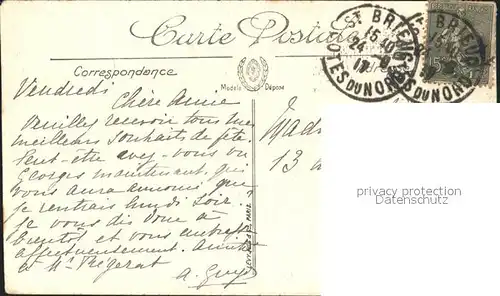 Carte Postale
ST BRIEUC
15 40
24 - 8
17
COTES DU NORD
Correspondance
Modèle Déposé
Vendredi
Chère Amie
Veuillez recevoir tous mes
meilleurs souhaits de fête.
Peut-être avez-vous vu
Georges maintenant, qui
vous aura annoncé que
je rentrais lundi soir.
Je vous dis donc à
bientôt et vous embrasse
affectueusement. Amitiés
à Mr
Mad
13
privacy protection
Datenschutz